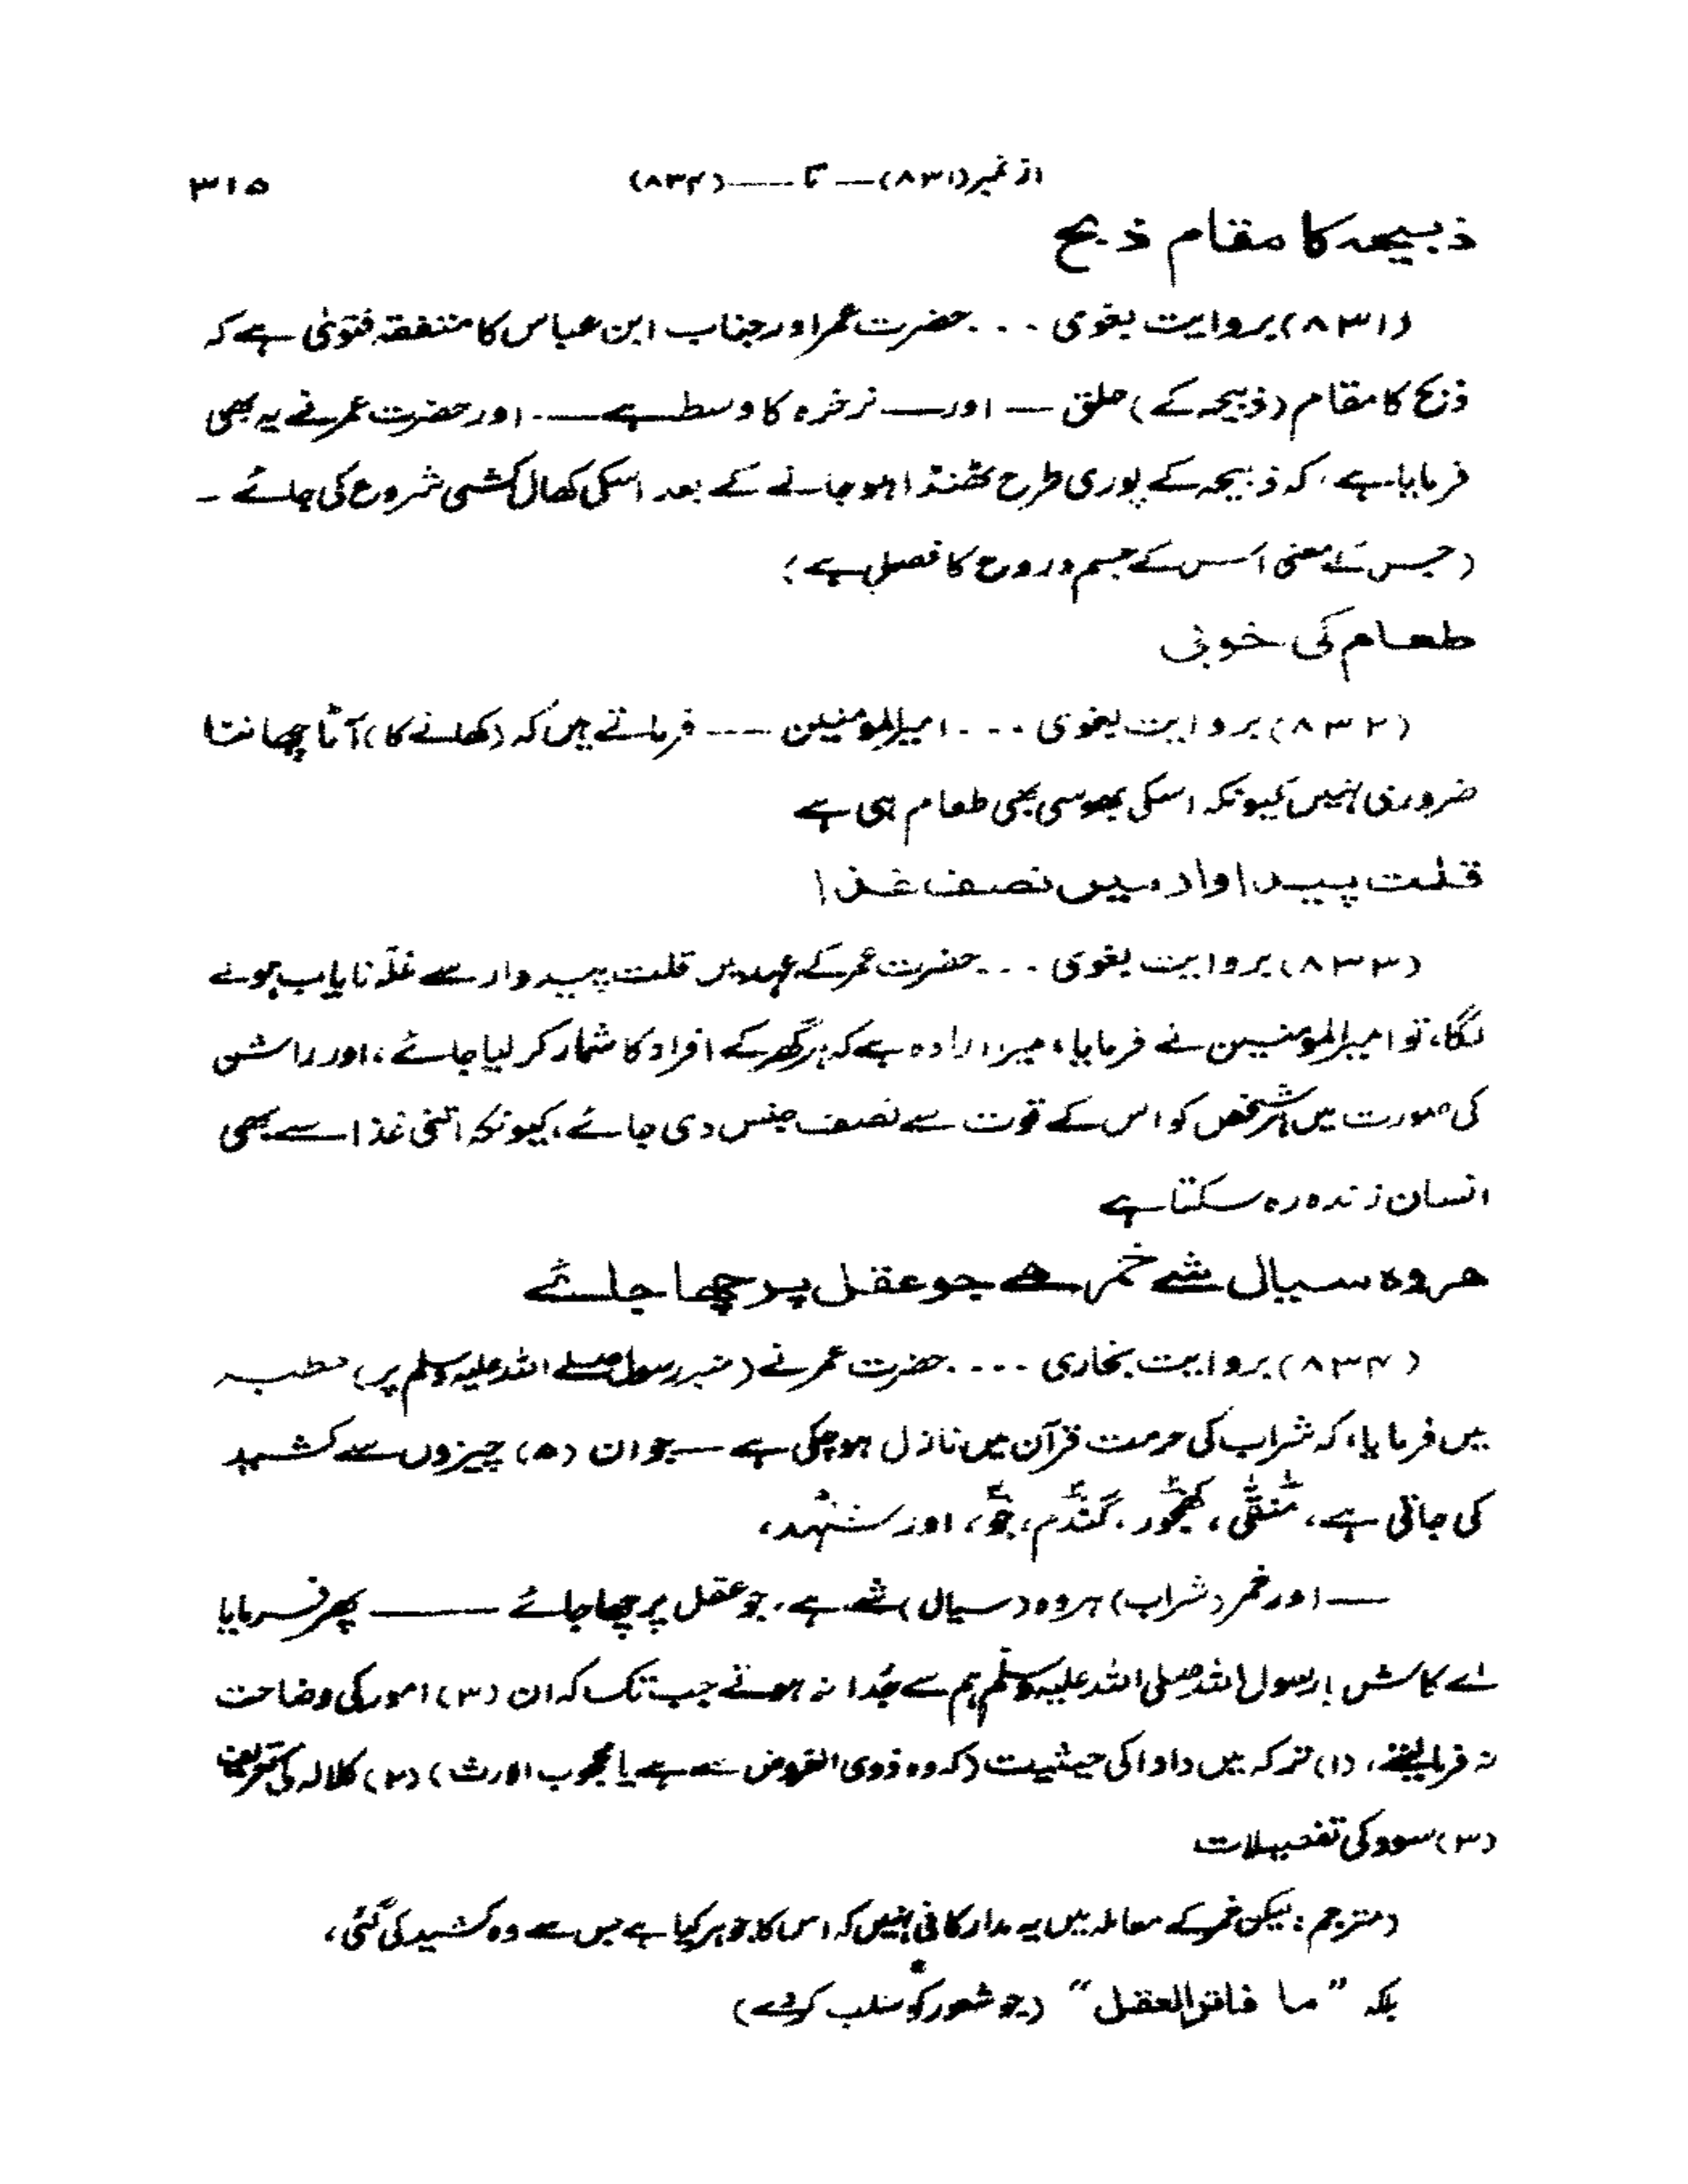 از نمبر (۸۳۱) — تا — (۸۳۴) ۳۱۵
ذبیحہ کا مقام ذبح
(۸۳۱) بروایت بغوی . . . حضرت عمر اور جناب ابن عباس کا متفقہ فتویٰ ہے کہ
ذبح کا مقام (ذبیحہ کے) حلق — اور — نرخرہ کا وسط ہے —. اور حضرت عمر نے یہ بھی
فرمایا ہے، کہ ذبیحہ کے پوری طرح ٹھنڈا ہو جانے کے بعد اسکی کھال کشی شروع کی جائے ۔
(جس کے معنی اس کے جسم و روح کا فصل ہے)
طعام کی خوبی
(۸۳۲) بروایت بغوی . . . امیرالمومنین --- فرماتے ہیں کہ (کھانے کا) آٹا چھاننا
ضروری نہیں کیونکہ اسکی بھوسی بھی طعام ہی ہے
قلت پیداوار میں نصف غذا
(۸۳۳) بروایت بغوی . . . حضرت عمر کے عہد میں قلت پیدوار سے غلّہ نایاب ہونے
لگا، تو امیرالمومنین نے فرمایا، میرا ارادہ ہے کہ ہر گھر کے افراد کا شمار کر لیا جائے، اور راشن
کی صورت میں ہر شخص کو اس کے قوت سے نصف جنس دی جائے، کیونکہ اتنی غذا سے بھی
انسان زندہ رہ سکتا ہے
ہر وہ سیال شے خمر ہے جو عقل پر چھا جائے
(۸۳۴) بروایت بخاری . . . . حضرت عمر نے (منبر رسول صلے اللہ علیہ وسلم پر) خطبہ
میں فرمایا، کہ شراب کی حرمت قرآن میں نازل ہو چکی ہے — جو ان (۵) چیزوں سے کشید
کی جاتی ہے، مُنقّٰی، کھجور، گندم، جَو، اور شہد،
— اور خمر (شراب) ہر وہ (سیال) شے ہے، جو عقل پر چھا جائے —— پھر فرمایا
اے کاش! رسول اللہ صلی اللہ علیہ وسلم ہم سے جُدا نہ ہوتے جب تک کہ ان (۳) امور کی وضاحت
نہ فرما لیتے، (۱) ترکہ میں دادا کی حیثیت (کہ وہ ذوی الفروض سے ہے یا محجوب الورث) (۲) کلالہ کی تعریف
(۳) سود کی تفصیلات
(مترجم: لیکن خمر کے معاملہ میں یہ مدار کافی نہیں کہ اس کا جوہر کیا ہے جس سے وہ کشید کی گئی،
بلکہ "ما خامر العقل" (جو شعور کو سلب کر دے)